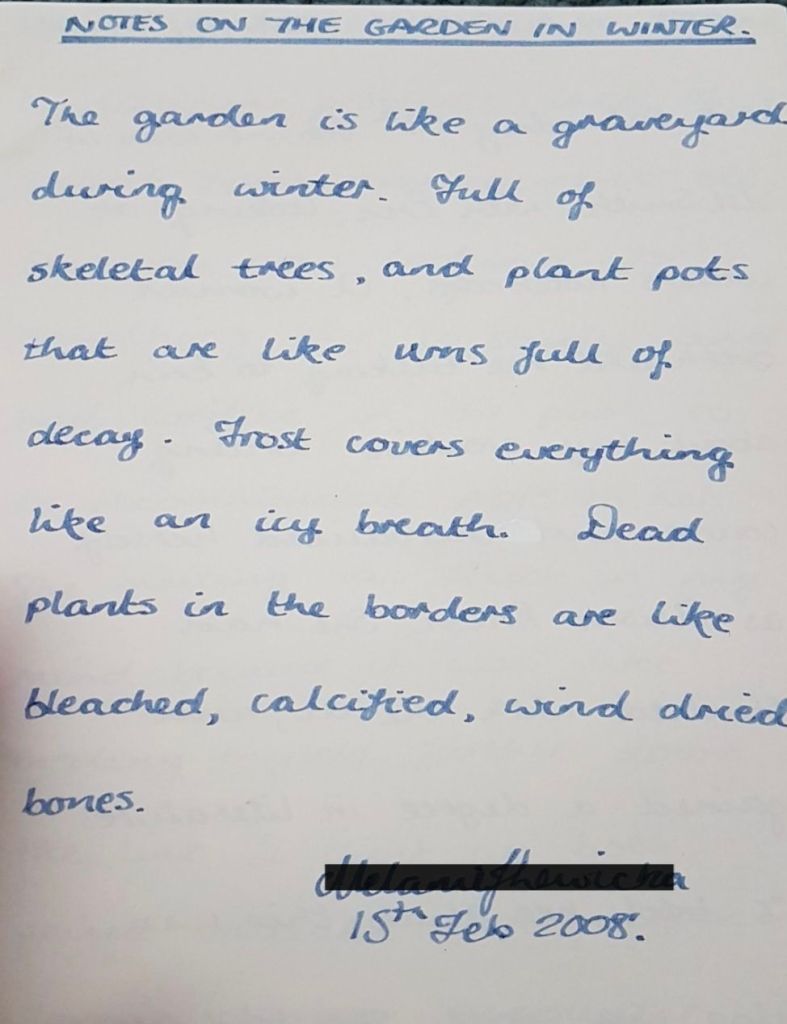 NOTES ON THE GARDEN IN WINTER.
The garden is like a graveyard
during winter. Full of
skeletal trees, and plant pots
that are like urns full of
decay. Frost covers everything
like an icy breath. Dead
plants in the borders are like
bleached, calcified, wind dried
bones.
15th Feb 2008.